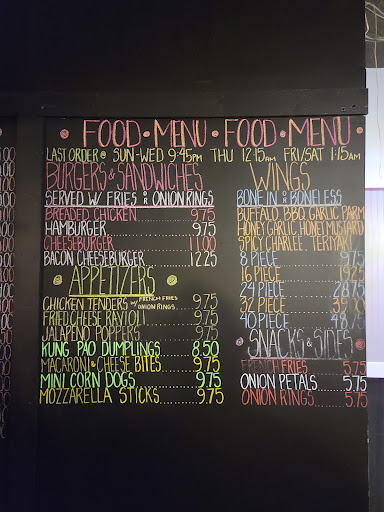 FOOD • MENU • FOOD • MENU
LAST ORDER @ SUN-WED 9:45PM THU 12:15AM FRI/SAT 1:15AM
BURGERS & SANDWICHES
SERVED W/ FRIES OR ONION RINGS
BREADED CHICKEN 9.75
HAMBURGER 9.75
CHEESEBURGER 11.00
BACON CHEESEBURGER 12.25
APPETIZERS
CHICKEN TENDERS W/ FRENCH FRIES OR ONION RINGS 9.75
FRIED CHEESE RAVIOLI 9.75
JALAPENO POPPERS 9.75
KUNG PAO DUMPLINGS 8.50
MACARONI & CHEESE BITES 9.75
MINI CORN DOGS 9.75
MOZZARELLA STICKS 9.75
WINGS
BONE IN OR BONELESS
BUFFALO BBQ GARLIC PARM
HONEY GARLIC HONEY MUSTARD
SPICY CHARLEE TERIYAKI
8 PIECE 9.75
16 PIECE 19.25
24 PIECE 28.75
32 PIECE
40 PIECE
SNACKS & SIDES
FRENCH FRIES 5.75
ONION PETALS 5.75
ONION RINGS 5.75